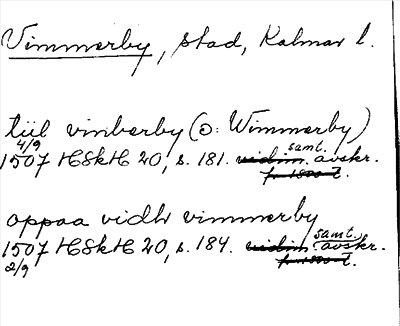 Vimmerby, stad, Kalmar l.
tiil vinberby (ɔ: Wimmerby)
4/9 samt.
1507 HSkH 20, s. 181. vidim. avskr.
f. 1800-t.
oppaa vidh vimmerby
samt.
1507 HSkH 20, s. 184. vidim. avskr.
2/9 f. 1800-t.